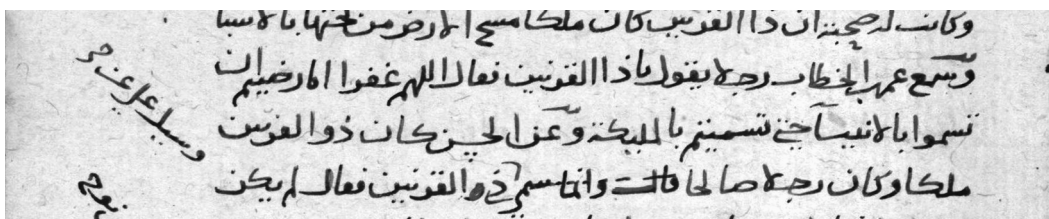 وكانت له صحبة ان ذا القرنين كان ملكا مسح الارض من تحتها بالاسبا
وسمع عمر بن الخطاب رجلا يقول ياذا القرنين فقال اللهم غفرا اما رضيتم ان
تسموا بالانبيا حتى تسميتم بالمليكة وعن الحسن كان ذو القرنين
ملكا وكان رجلا صالحا قالت وانما سمى ذو القرنين فقال لم يكن
وسيل على عن